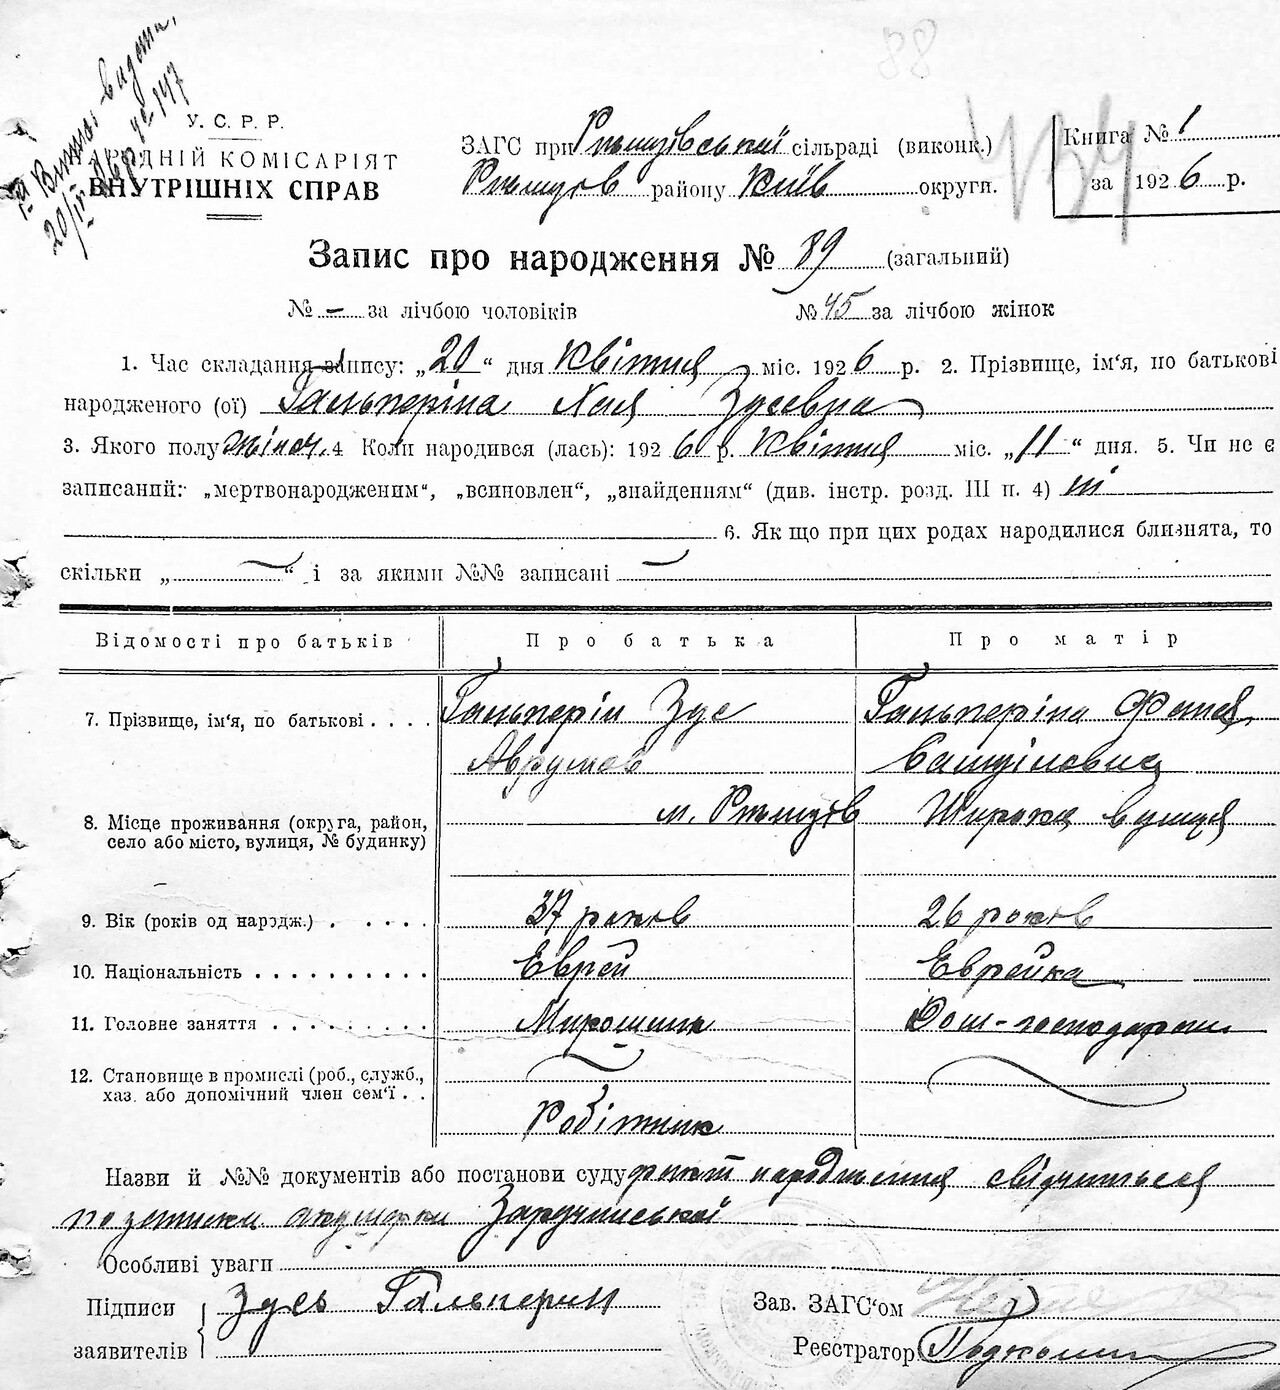 88
видата,
20/IV
№ 147
У. С. Р. Р.
АРОДНІЙ КОМІСАРІЯТ
ВНУТРІШНІХ СПРАВ
ЗАГС при Ржищівській сільраді (виконк.)
Ржищів району Київ округи.
Книга № 1
за 1926 р.
Запис про народження № 89 (загальний)
№ - за лічбою чоловіків № 45 за лічбою жінок
1. Час складання запису: „20“ дня Квітня міс. 1926 р. 2. Прізвище, ім‘я, по батькові
народженого (ої) Гальперіна Хая Зусевна
3. Якого полу жіноч. 4 Коли народився (лась): 1926 р. Квітня міс. „11“ дня. 5. Чи не є
записаний: „мертвонародженим“, „всиновлен“, „знайденням“ (див. інстр. розд. III п. 4) ні
6. Як що при цих родах народилися близнята, то
скільки „ — “ і за якими №№ записані —
Відомості про батьків Про батька Про матір
7. Прізвище, ім‘я, по батькові . . . . Гальперін Зус Гальперіна
Аврумов
8. Місце проживання (округа, район, м. Ржищів Широка вулиця
село або місто, вулиця, № будинку)
9. Вік (років од народж.) . . . . . 37 років 26 років
10. Національність . . . . . . . . . . Еврей Еврейка
11. Головне заняття . . . . . . . . . Мірошник Дом-господарка
12. Становище в промислі (роб., служб.,
хаз. або допомічний член сем‘ї . .
Робітник
Назви й №№ документів або постанови суду факт народження свідчиться
по записки акушерки Заручинської
Особливі уваги
Підписи Зусь Гальперин Зав. ЗАГС‘ом
заявителів Реєстратор